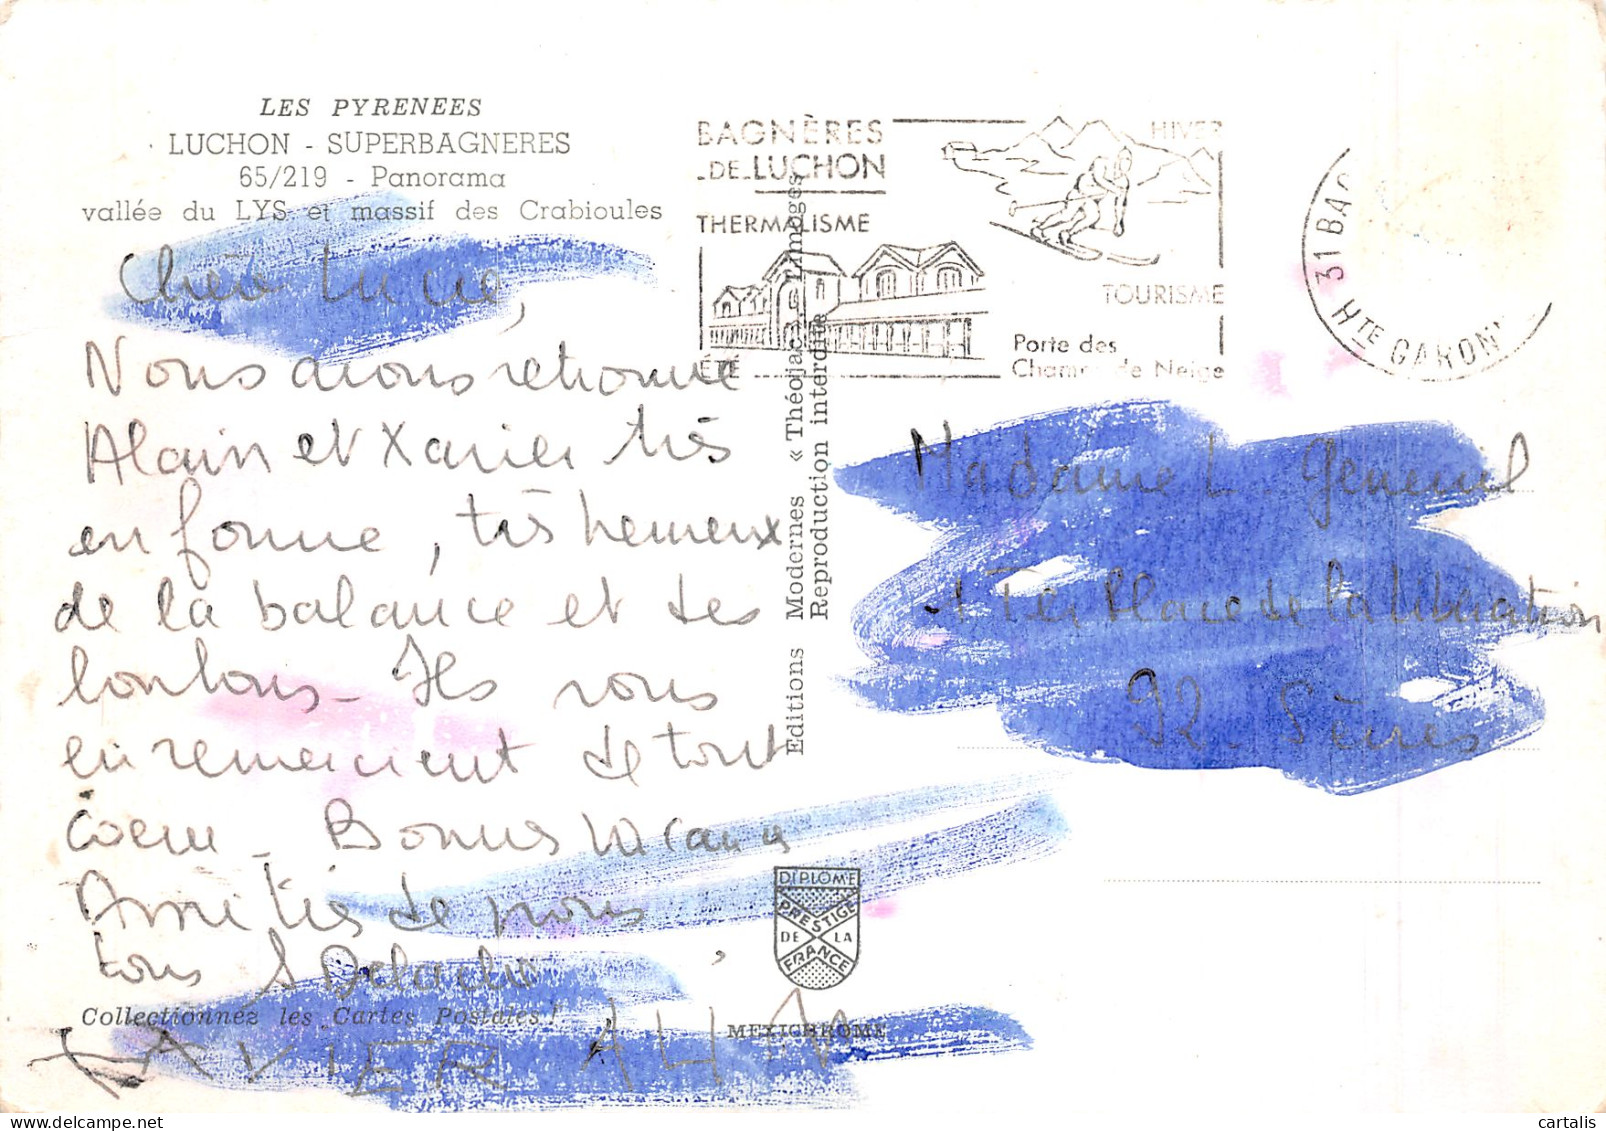 LES PYRENEES
LUCHON - SUPERBAGNERES
65/219 - Panorama
vallée du LYS et massif des Crabioules
Chère Lucie,
Nous avons retrouvé
Alain et Xavier très
en forme, très heureux
de la balance et des
bonbons - Ils vous
en remercient de tout
coeur - Bonnes vacances
Amitiés de nous
tous
Collectionnez les Cartes Postales !
XAVIER
Editions Modernes « Théojac » Limoges
Reproduction interdite
BAGNÈRES
DE LUCHON
THERMALISME
ÉTÉ
HIVER
TOURISME
Porte des
Champs de Neige
31 BAG
HTE GARONN
Madame L.
1 Ter Place de la Libération
92. Sèvres
DIPLOME
PRESTIGE
DE LA
FRANCE
MEXICHROME
cartalis